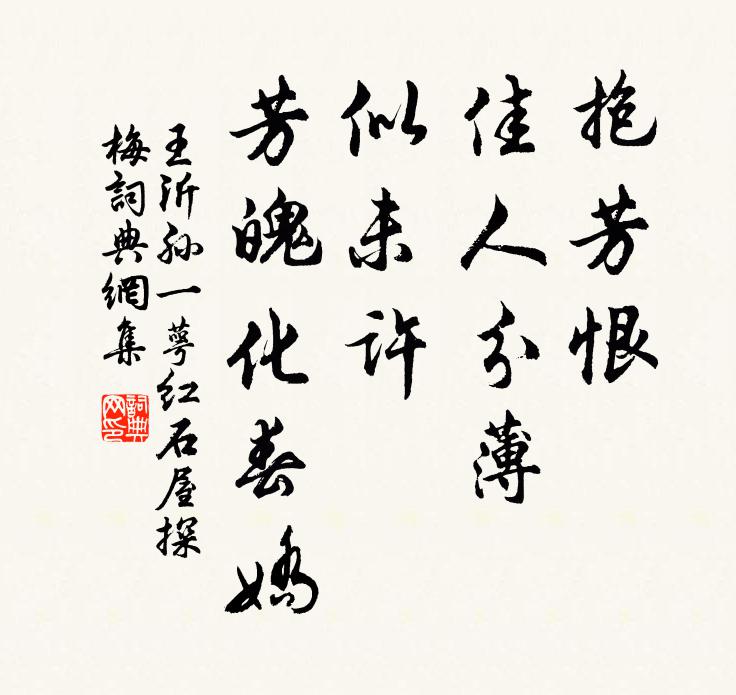 抱芳恨
佳人分薄
似未许
芳魄化春娇
王沂孙一萼红石屋探
梅詞典網集
詞典
网印